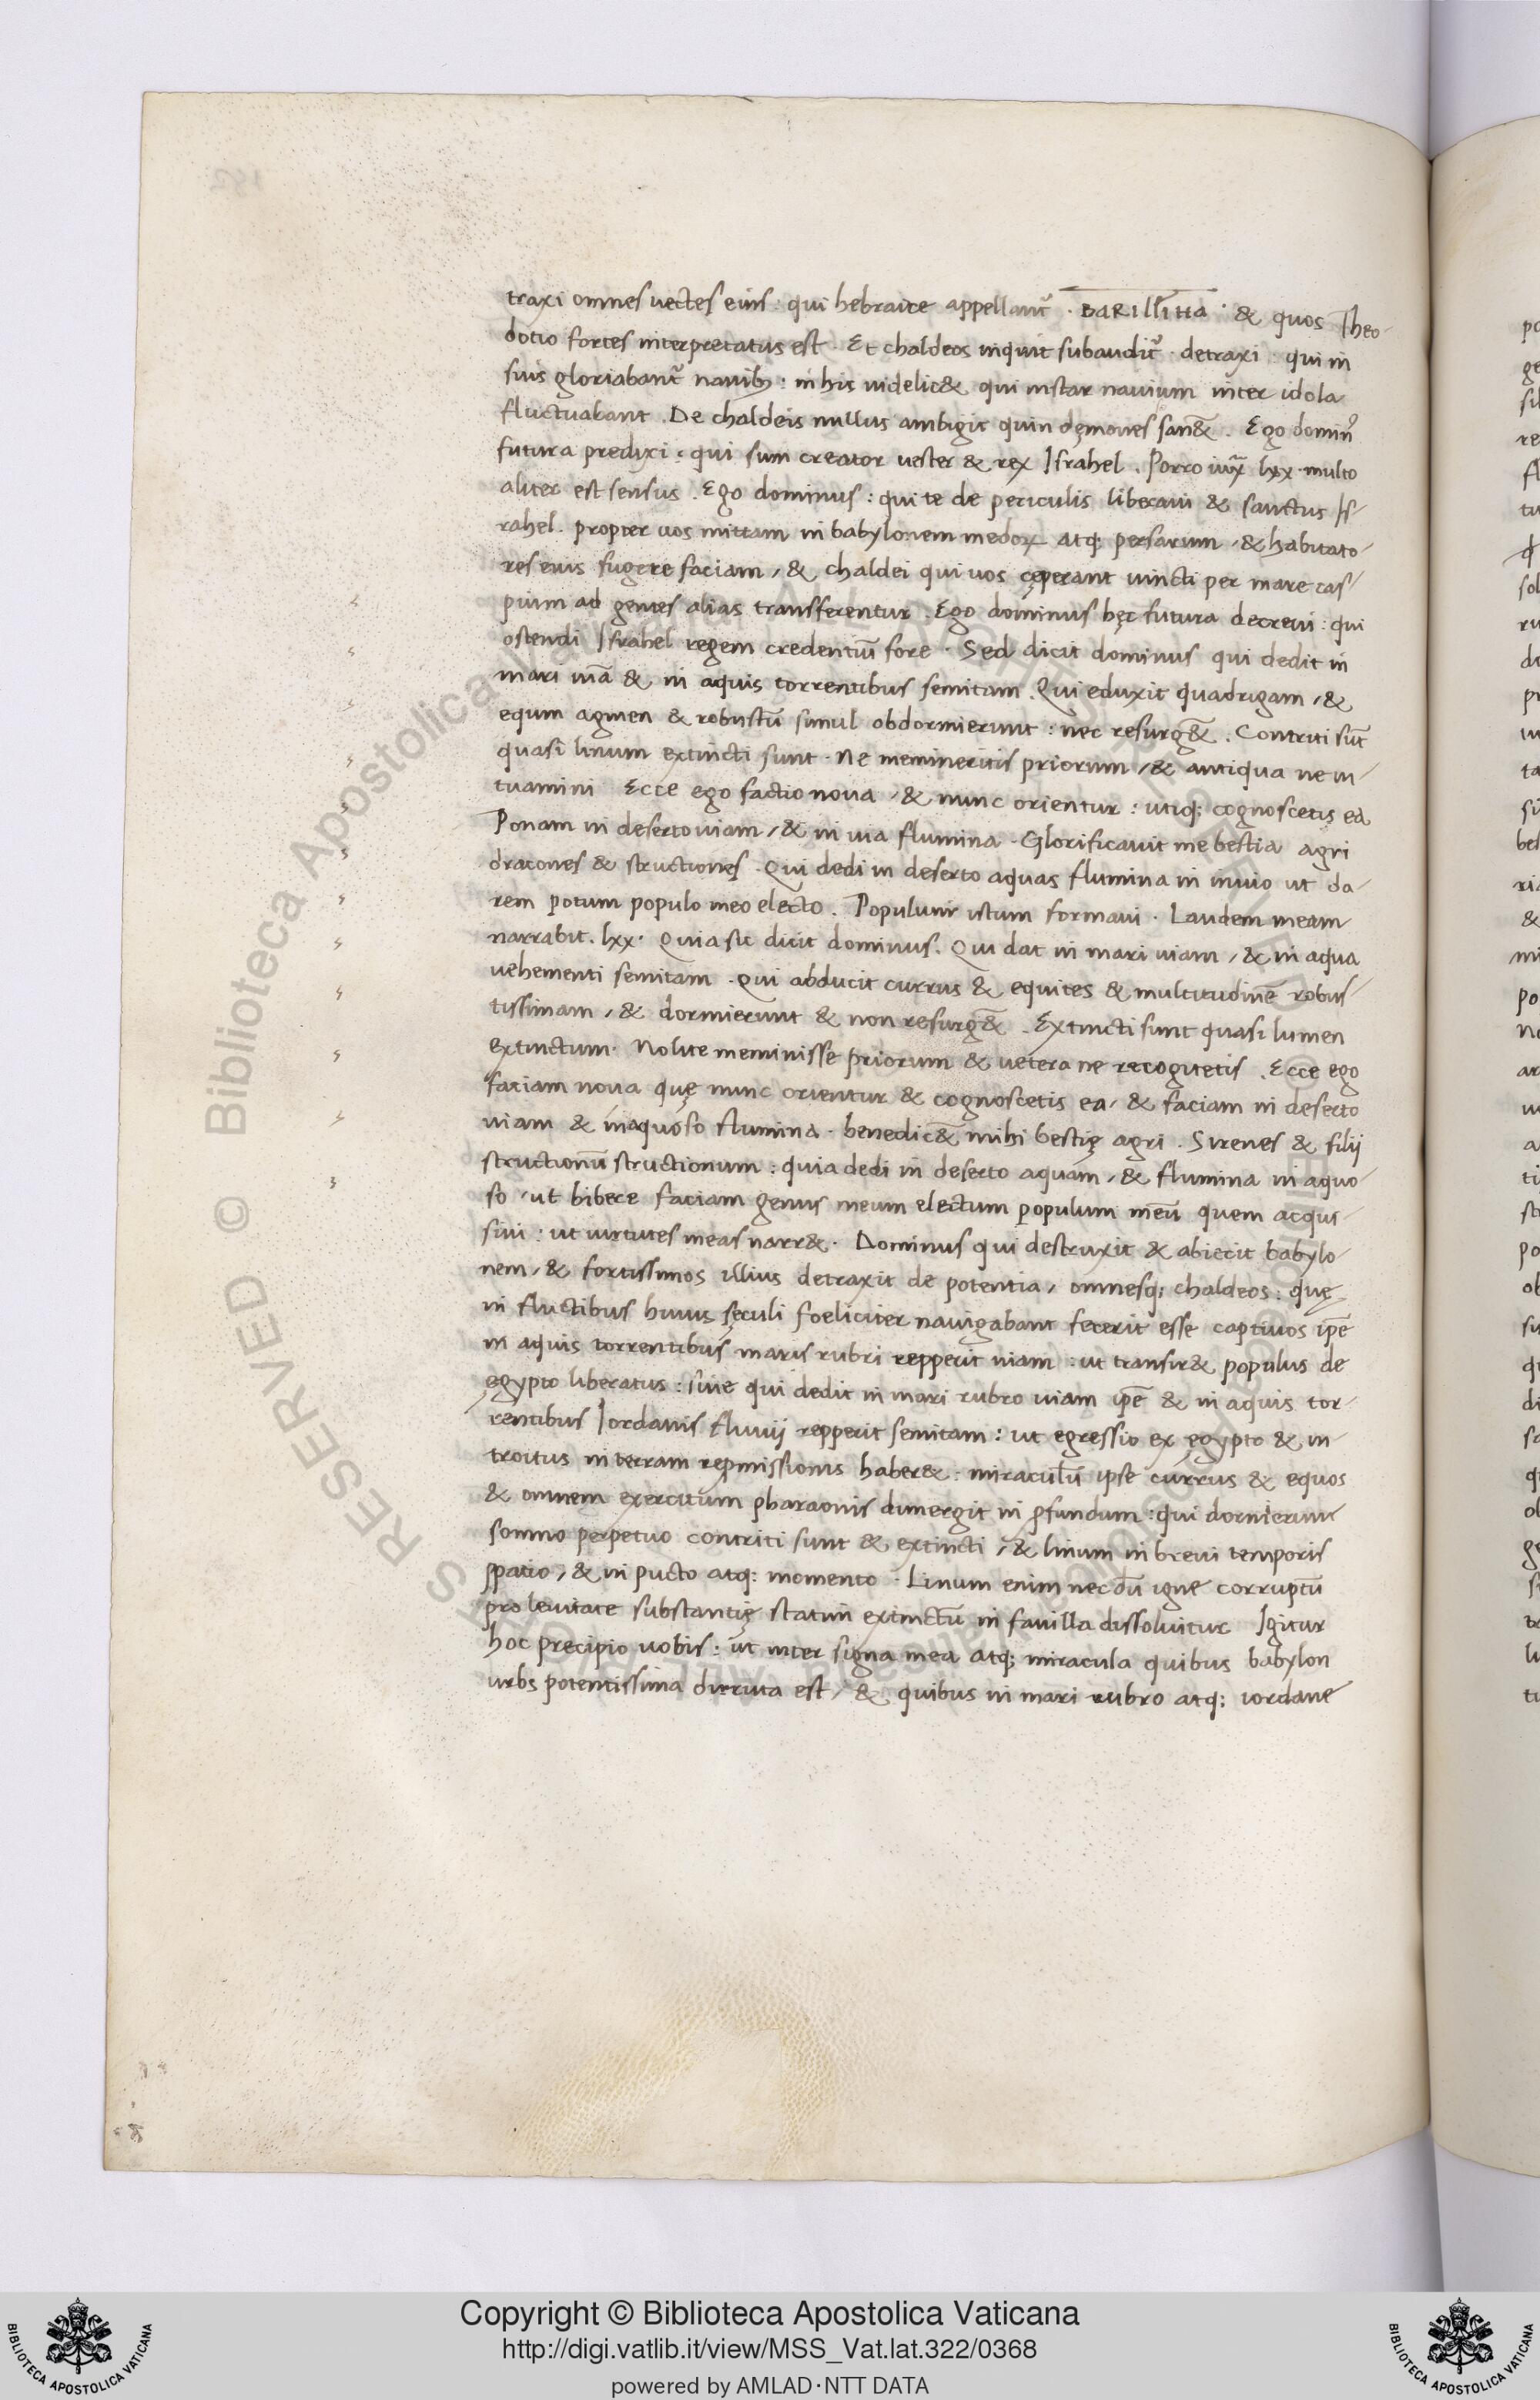 traxi omnes uectes eius : qui hebraice appellant᷑ · BARIIIIHA · & quos Theo-
dotio fortes interpretatus est · Et chaldeos inquit subaudit᷑ · detraxi : qui in
suis gloriabant᷑ nauib; : in his uidelic& qui instar nauium inter idola
fluctuabant . De chaldeis nullus ambigit quin dęmones san& . Ego domin᷒
futura predixi : qui sum creator uester & rex Israhel . Porro lxx · multo
aliter est sensus . Ego dominus : qui te de periculis liberaui & sanctus Is-
rahel . propter uos mittam in babylonem medoꝝ atq; persarum , & habitato-
res euis fugere faciam , & chaldei qui uos cęperant uincti per mare cas-
pium ad gentes alias transferentur . Ego dominus hęc futura decreui : qui
ostendi Israhel regem credentiū fore · Sed dicit dominus qui dedit in
mari uiā & in aquis torrentibus semitam . Qui eduxit quadrigam , &
equm agmen & robustū simul obdormierunt : nec resurg&̄ . Contriti sūt
quasi linum extincti sunt · Ne memineritis priorum , & antiqua ne in-
tuamini Ecce ego factio noua , & nunc orientur : utiq; cognoscetis ea
Ponam in deserto uiam , & in uia flumina · Glorificauit me bestia agri
dracones & structiones · Qui dedi in deserto aquas flumina in inuio ut da-
rem potum populo meo electo . Populum istum formaui · Laudem meam
narrabit . lxx · Quia sic dicit dominus . Qui dat in mari uiam , & in aqua
uehementi semitam · qui abducit currus & equites & multitudinē robus-
tissimam , & dormierunt & non resurg&̄ . Extincti sunt quasi lumen
extinctum · Nolite meminisse priorum & uetera ne recogitetis . Ecce ego
faciam noua quę nunc orientur & cognoscetis ea , & faciam in deserto
uiam & inaquoso flumina · benedic&̄ mihi bestię agri . Sirenes & filij
structionū structionum : quia dedi in deserto aquam , & flumina in aquo-
so , ut bibere faciam genus meum electum populum meū quem acqui-
siui : ut uirtutes meas narr& · Dominus qui destruxit & abiecit babylo-
nem , & fortissimos illius detraxit de potentia , omnesq; chaldeos : quę
in fluctibus huius sęculi foeliciter nauigabant fecerit esse captiuos ip̄e
in aquis torrentibus maris rubri repperit uiam : ut transir& populus de
egypto liberatus : siue qui dedit in mari rubro uiam ip̄e & in aquis tor-
rentibus Iordanis fluuij repperit semitam : ut egressio ex ęgypto & in-
troitus in terram repmissionis haber& : miraculū ipse currus & equos
& omnem exercitum pharaonis dimergit in ꝓfundum : qui dormierunt
somno perpetuo contriti sunt & extincti , & linum in breui temporis
spatio , & in pucto atq; momento · Linum enim nec dū igne corruptū
pro leuitate substantię statim extinctū in fauilla dissoluitur Igitur
hoc precipio uobis : ut inter signa mea atq; miracula quibus babylon
urbs potentissima dirruta est , & quibus in mari rubro atq; iordane
Copyright © Biblioteca Apostolica Vaticana
http://digi.vatlib.it/view/MSS_Vat.lat.322/0368
powered by AMLAD·NTT DATA